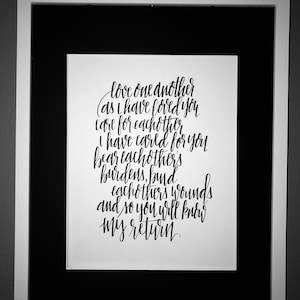 love one another
as i have loved you
care for each other
i have cared for you
bear each others
burdens, bind
each others wounds
and so you will know
my return